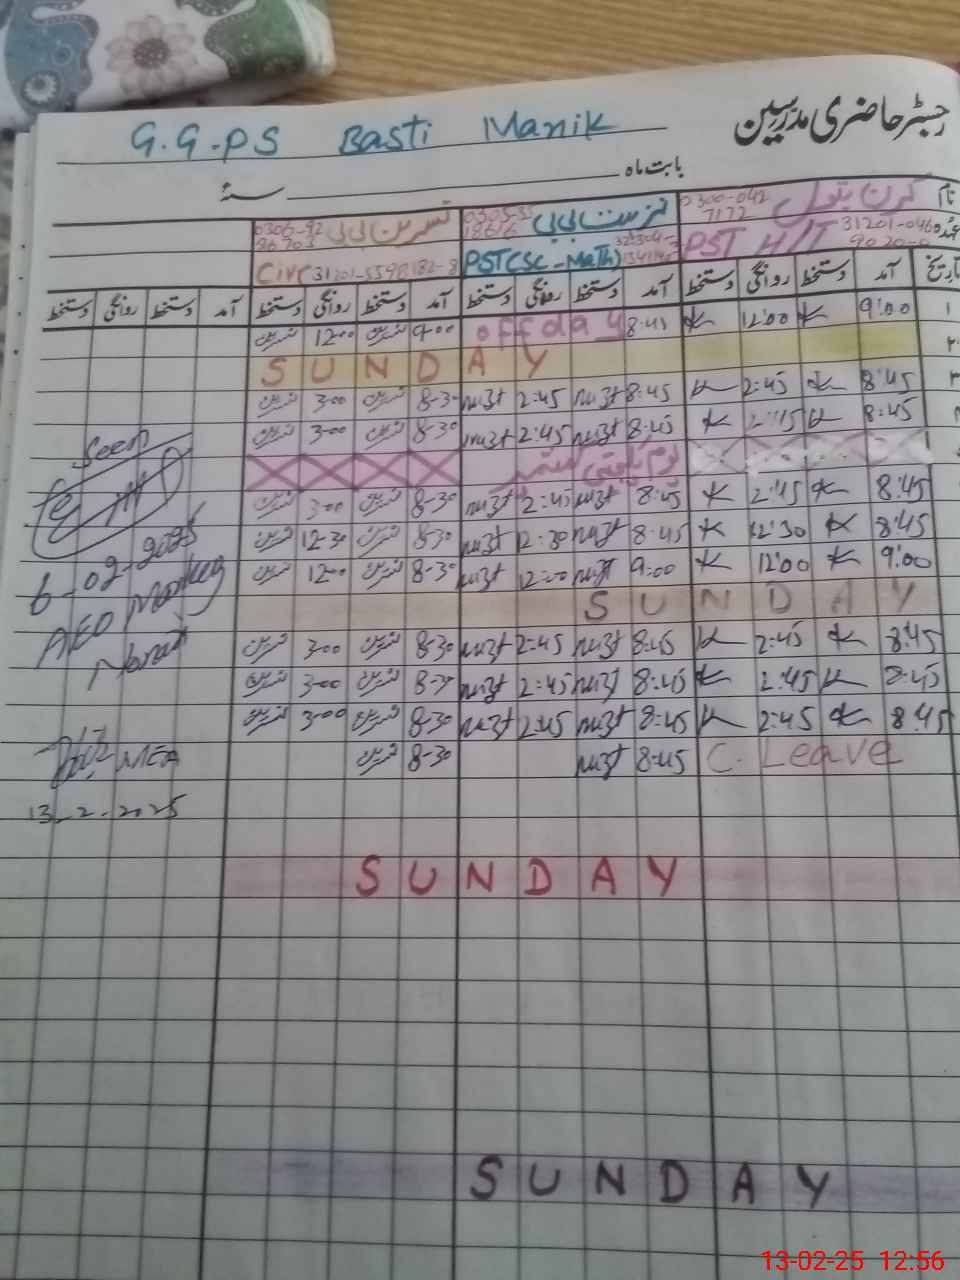 رجسٹر حاضری مدرسین
G.G.PS Basti Manik
بابت ماہ سنہ
نام کرن بتول 0300-042 7172 0305-35 18616 نسرین بی بی 0306-92 96703
عہدہ PST H/T PST(SC-Math) Civc 31201-5598182-8
تاریخ آمد دستخط روانگی دستخط آمد دستخط روانگی دستخط آمد دستخط روانگی دستخط آمد دستخط روانگی دستخط
۱ 9:00 K 12:00 K 8:45 off day 9-00 نسرین 12-00 نسرین
۲ SUNDAY
۳ 8:45 K 2:45 K 8:45 nuzt 2:45 nuzt 8-30 نسرین 3-00 نسرین
8:45 K 2:45 K 8:45 nuzt 2:45 nuzt 8-30 نسرین 3-00 نسرین
یوم یکجہتی کشمیر
8:45 K 2:45 K 8:45 nuzt 2:45 nuzt 8-30 نسرین 3-00 نسرین
8:45 K 12:30 K 8:45 nuzt 12:30 nuzt 8-30 نسرین 12-30 نسرین
9:00 K 12:00 K 9:00 nuzt 12:00 nuzt 8-30 نسرین 12-00 نسرین
SUNDAY
8:45 K 2:45 K 8:45 nuzt 2:45 nuzt 8-30 نسرین 3-00 نسرین
8:45 K 2:45 K 8:45 nuzt 2:45 nuzt 8-30 نسرین 3-00 نسرین
8:45 K 2:45 K 8:45 nuzt 2:45 nuzt 8-30 نسرین 3-00 نسرین
C. Leave 8:45 nuzt 8-30 نسرین
Seen
6-02-2025
AEO
MEA
13-2-2025
SUNDAY
SUNDAY
13-02-25 12:56